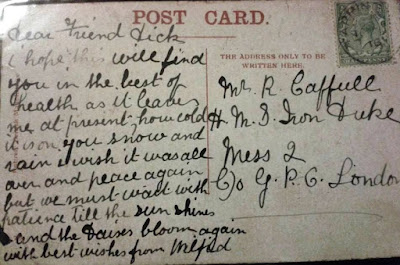 POST CARD.
Dear Friend Dick
i hope this will find
you in the best of
health as it leaves
me at present how cold
it is on you snow and
rain i wish it was all
over and peace again
but we must wait with
patience till the sun shines
and the Daises bloom again
with best wishes from Wilfred
THE ADDRESS ONLY TO BE
WRITTEN HERE.
Mr. R. Caffull
H. M. S. Iron Duke
Mess 2
C/o G. P. O. London